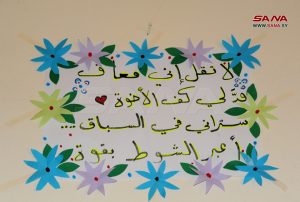 SANA
WWW.SANA.SY
لا تقل إني معاق
مد لي كف الأخوة
ستراني في السباق ...
أعبر الشوط بقوة